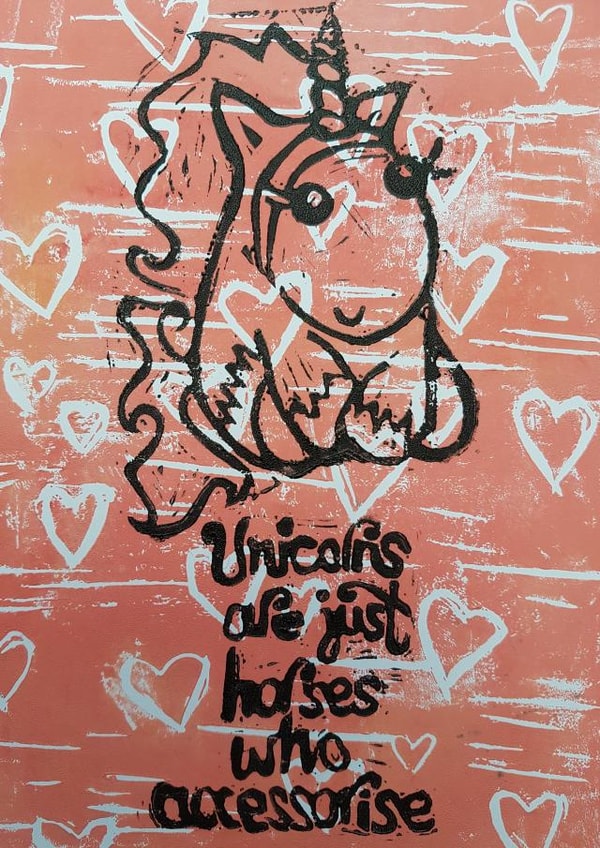 Unicorns
are just
horses
who
accessorise